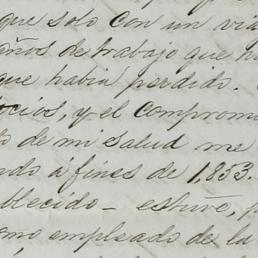 que solo con un via
años de trabajo que h
que habia perdido.
ocios, y el compromi
o de mi salud me
ndo á fines de 1,853.
blecido – estuve, p
omo empleado de la